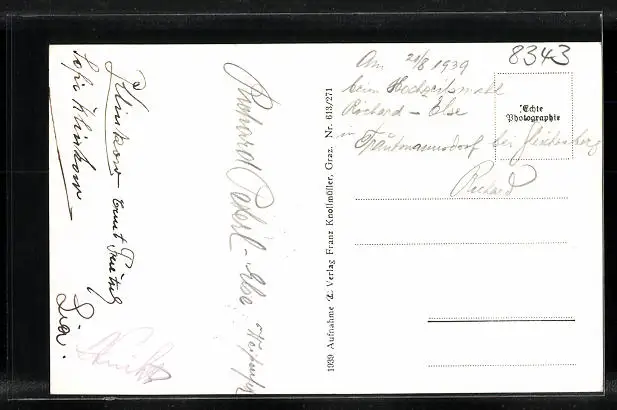 8343
Am 20/8 1939
beim Hochzeitsmahl
Richard - Else
in Trautmannsdorf bei Gleichenberg
Richard
"Echte
Photographie
1939 Aufnahme & Verlag Franz Knollmüller, Graz. Nr. 613/271
Richard - Else
Klinkow
Ernst
Sofie Klinkow
Lia.